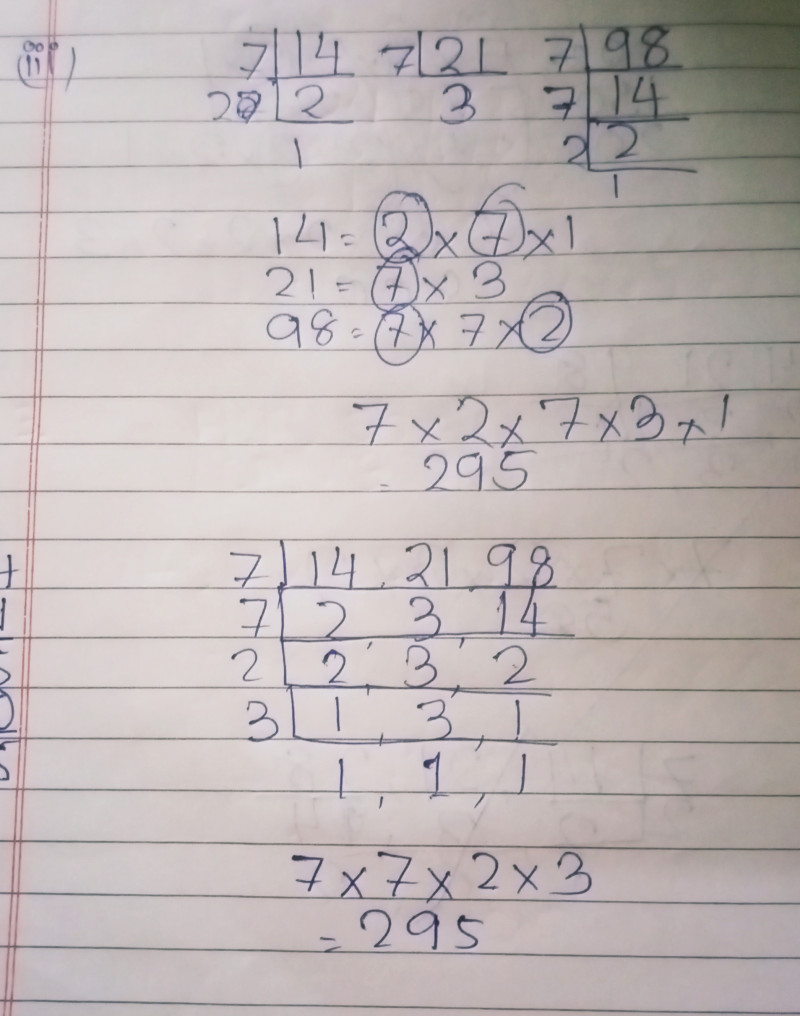 (iii) 7 14 7 21 7 98
2 2 3 7 14
1 2 2
1
14 = 2 x 7 x 1
21 = 7 x 3
98 = 7 x 7 x 2
7 x 2 x 7 x 3 x 1
= 295
7 14, 21, 98
7 2, 3, 14
2 2, 3, 2
3 1, 3, 1
1, 1, 1
7 x 7 x 2 x 3
= 295